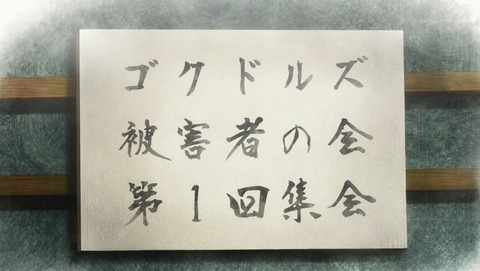 ゴクドルズ
被害者の会
第1回集会